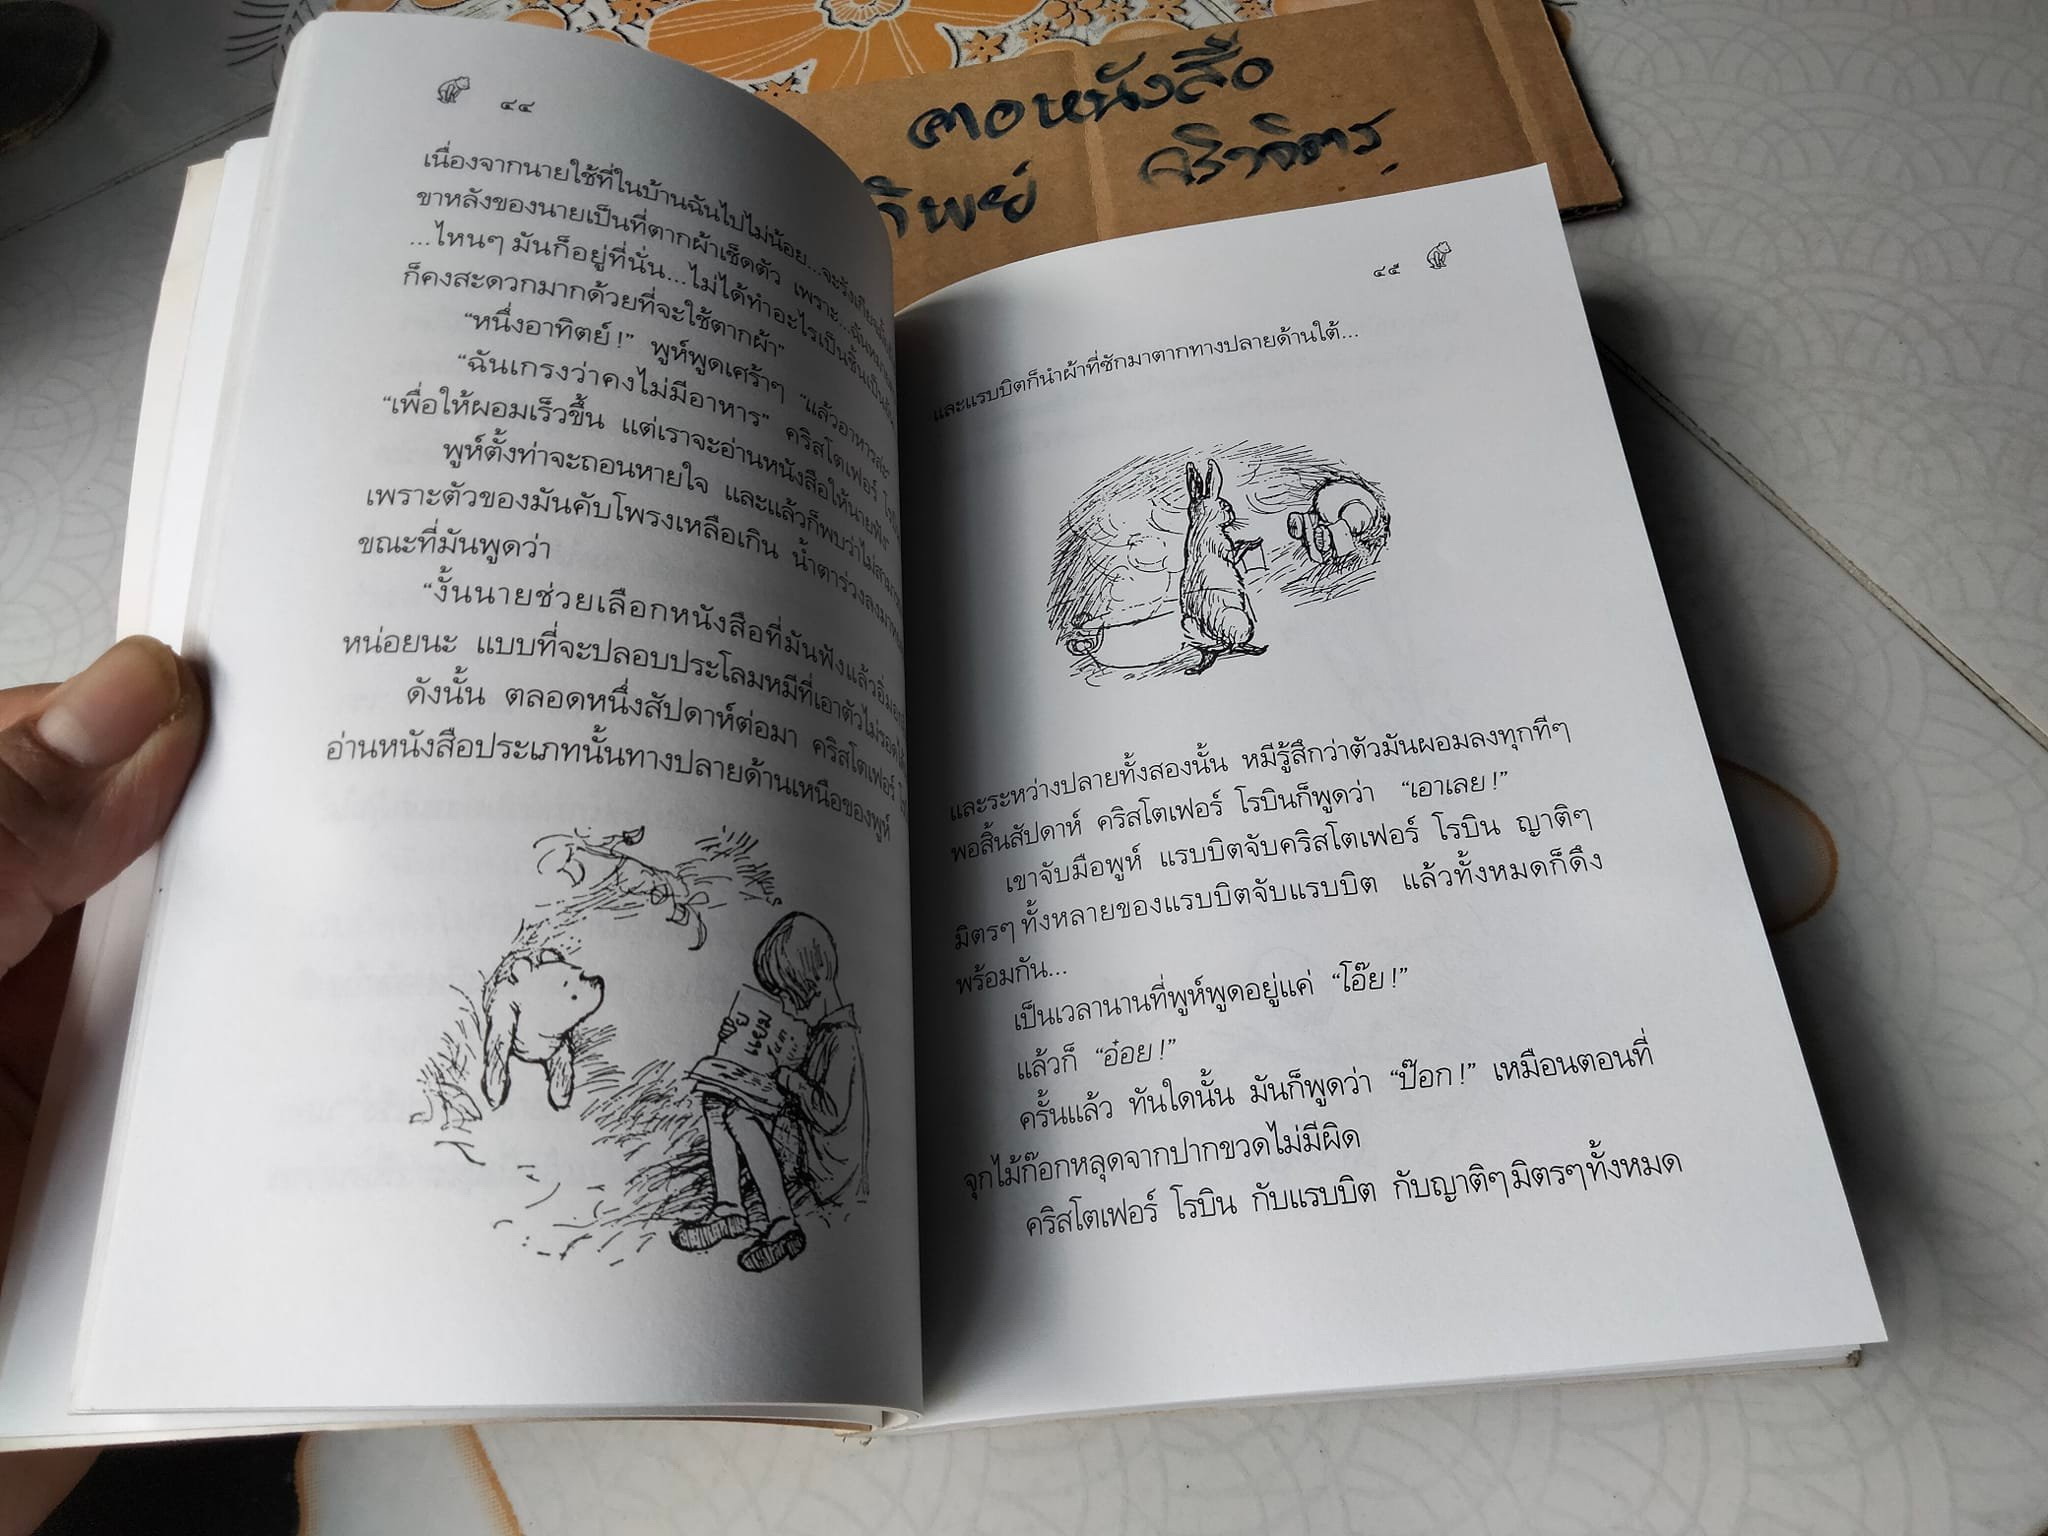 ๔๔
เนื่องจากนายใช้ที่ในบ้านฉันไปไม่น้อย...จะรังเกียจไหม
ขาหลังของนายเป็นที่ตากผ้าเช็ดตัว เพราะ...ฉันหมายความ
...ไหนๆ มันก็อยู่ที่นั่น...ไม่ได้ทำอะไรเป็นชิ้นเป็นอัน
ก็คงสะดวกมากด้วยที่จะใช้ตากผ้า”
“หนึ่งอาทิตย์!” พูห์พูดเศร้าๆ “แล้วอาหารล่ะ
“ฉันเกรงว่าคงไม่มีอาหาร” คริสโตเฟอร์
“เพื่อให้ผอมเร็วขึ้น แต่เราจะอ่านหนังสือให้นายฟัง”
พูห์ตั้งท่าจะถอนหายใจ และแล้วก็พบว่าไม่สามารถ
เพราะตัวของมันคับโพรงเหลือเกิน น้ำตาร่วงลงมา
ขณะที่มันพูดว่า
“งั้นนายช่วยเลือกหนังสือที่มันฟังแล้วอิ่ม
หน่อยนะ แบบที่จะปลอบประโลมหมีที่เอาตัวไม่รอดได้
ดังนั้น ตลอดหนึ่งสัปดาห์ต่อมา คริสโตเฟอร์
อ่านหนังสือประเภทนั้นทางปลายด้านเหนือของพูห์
แยม
คอหนังสือ
ทิพย์ ศริจิตร
๔๕
และแรบบิตก็นำผ้าที่ซักมาตากทางปลายด้านใต้...
และระหว่างปลายทั้งสองนั้น หมีรู้สึกว่าตัวมันผอมลงทุกทีๆ
พอสิ้นสัปดาห์ คริสโตเฟอร์ โรบินก็พูดว่า “เอาเลย!”
เขาจับมือพูห์ แรบบิตจับคริสโตเฟอร์ โรบิน ญาติๆ
มิตรๆ ทั้งหลายของแรบบิตจับแรบบิต แล้วทั้งหมดก็ดึง
พร้อมกัน...
เป็นเวลานานที่พูห์พูดอยู่แค่ “โอ๊ย!”
แล้วก็ “อ๋อย!”
ครั้นแล้ว ทันใดนั้น มันก็พูดว่า “ป๊อก!” เหมือนตอนที่
จุกไม้ก๊อกหลุดจากปากขวดไม่มีผิด
คริสโตเฟอร์ โรบิน กับแรบบิต กับญาติๆ มิตรๆ ทั้งหมด